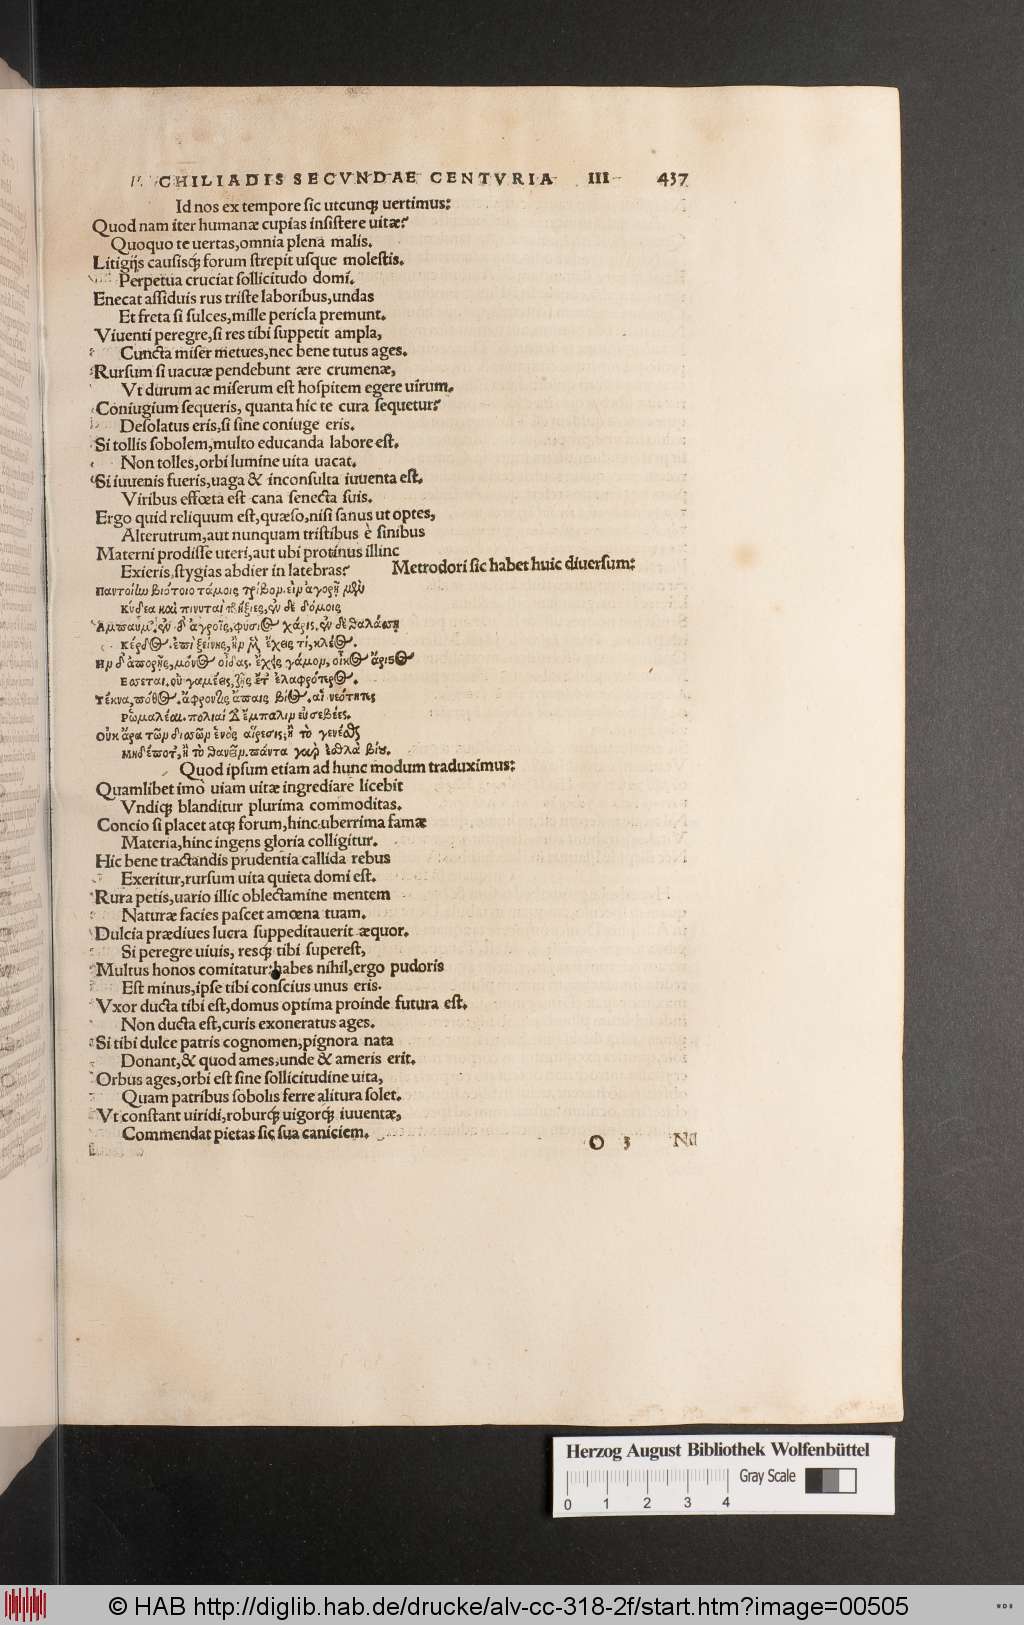 CHILIADIS SECVNDAE CENTVRIA III 437
Id nos ex tempore sic utcunq; uertimus:
Quod nam iter humanæ cupias insistere uitæ?
Quoquo te uertas, omnia plena malis.
Litigijs causisq; forum strepit usque molestis.
Perpetua cruciat sollicitudo domi.
Enecat assiduis rus triste laboribus, undas
Et freta si sulces, mille pericla premunt.
Viuenti peregre, si res tibi suppetit ampla,
Cuncta miser metues, nec bene tutus ages.
Rursum si uacuæ pendebunt ære crumenæ,
Vt durum ac miserum est hospitem egere uirum.
Coniugium sequeris, quanta hic te cura sequetur?
Desolatus eris, si sine coniuge eris.
Si tollis sobolem, multo educanda labore est.
Non tolles, orbi lumine uita uacat.
Si iuuenis fueris, uaga & inconsulta iuuenta est.
Viribus effœta est cana senecta suis.
Ergo quid reliquum est, quæso, nisi sanus ut optes,
Alterutrum, aut nunquam tristibus è sinibus
Materni prodisse uteri, aut ubi protinus illinc
Exieris, stygias abdier in latebras? Metrodori sic habet huic diuersum:
Παντοίlω βιότοιο τάμοις τρίβομ. εἰμ ἀγορῇ μὲν
Κύδεα καὶ πινυταὶ πρήξιες, ἐν δὲ δόμοις
Ἄμπαυμ', ἐν δ' ἀγροῖς, φύσιος χάρις. ἐν δὲ θαλάσσῃ
Κέρδος. ἐπὶ ξείνης, ἢν μὲν ἔχῃς τι, κλέος.
Ἢν δ' ἀπορῇς, μόνος οἶδας. ἔχεις γάμον, οἶκος ἄριστος
Ἔσσεται. οὐ γαμέεις, ζῇς ἔτ' ἐλαφρότερος.
Τέκνα, πόθος. ἄφροντις ἄπαις βίος. αἱ νεότητες
Ῥωμαλέαι. πολιαὶ δ' ἔμπαλιν εὐσεβέες.
Οὐκ ἄρα τῶν δισσῶν ἑνὸς αἵρεσις, ἢ τὸ γενέσθαι
Μηδέποτ', ἢ τὸ θανεῖν. πάντα γὰρ ἐσθλὰ βίῳ.
Quod ipsum etiam ad hunc modum traduximus:
Quamlibet imò uiam uitæ ingrediare licebit
Vndiq; blanditur plurima commoditas.
Concio si placet atq; forum, hinc uberrima famæ
Materia, hinc ingens gloria colligitur.
Hic bene tractandis prudentia callida rebus
Exeritur, rursum uita quieta domi est.
Rura petis, uario illic oblectamine mentem
Naturæ facies pascet amœna tuam.
Dulcia prædiues lucra suppeditauerit æquor.
Si peregre uiuis, resq; tibi superest,
Multus honos comitatur: habes nihil, ergo pudoris
Est minus, ipse tibi conscius unus eris.
Vxor ducta tibi est, domus optima proinde futura est.
Non ducta est, curis exoneratus ages.
Si tibi dulce patris cognomen, pignora nata
Donant, & quod ames, unde & ameris erit.
Orbus ages, orbi est sine sollicitudine uita,
Quam patribus sobolis ferre alitura solet.
Vt constant uiridi, roburq; uigorq; iuuentæ,
Commendat pietas sic sua caniciem.
O 3 Nu
Herzog August Bibliothek Wolfenbüttel
Gray Scale
0 1 2 3 4
© HAB http://diglib.hab.de/drucke/alv-cc-318-2f/start.htm?image=00505